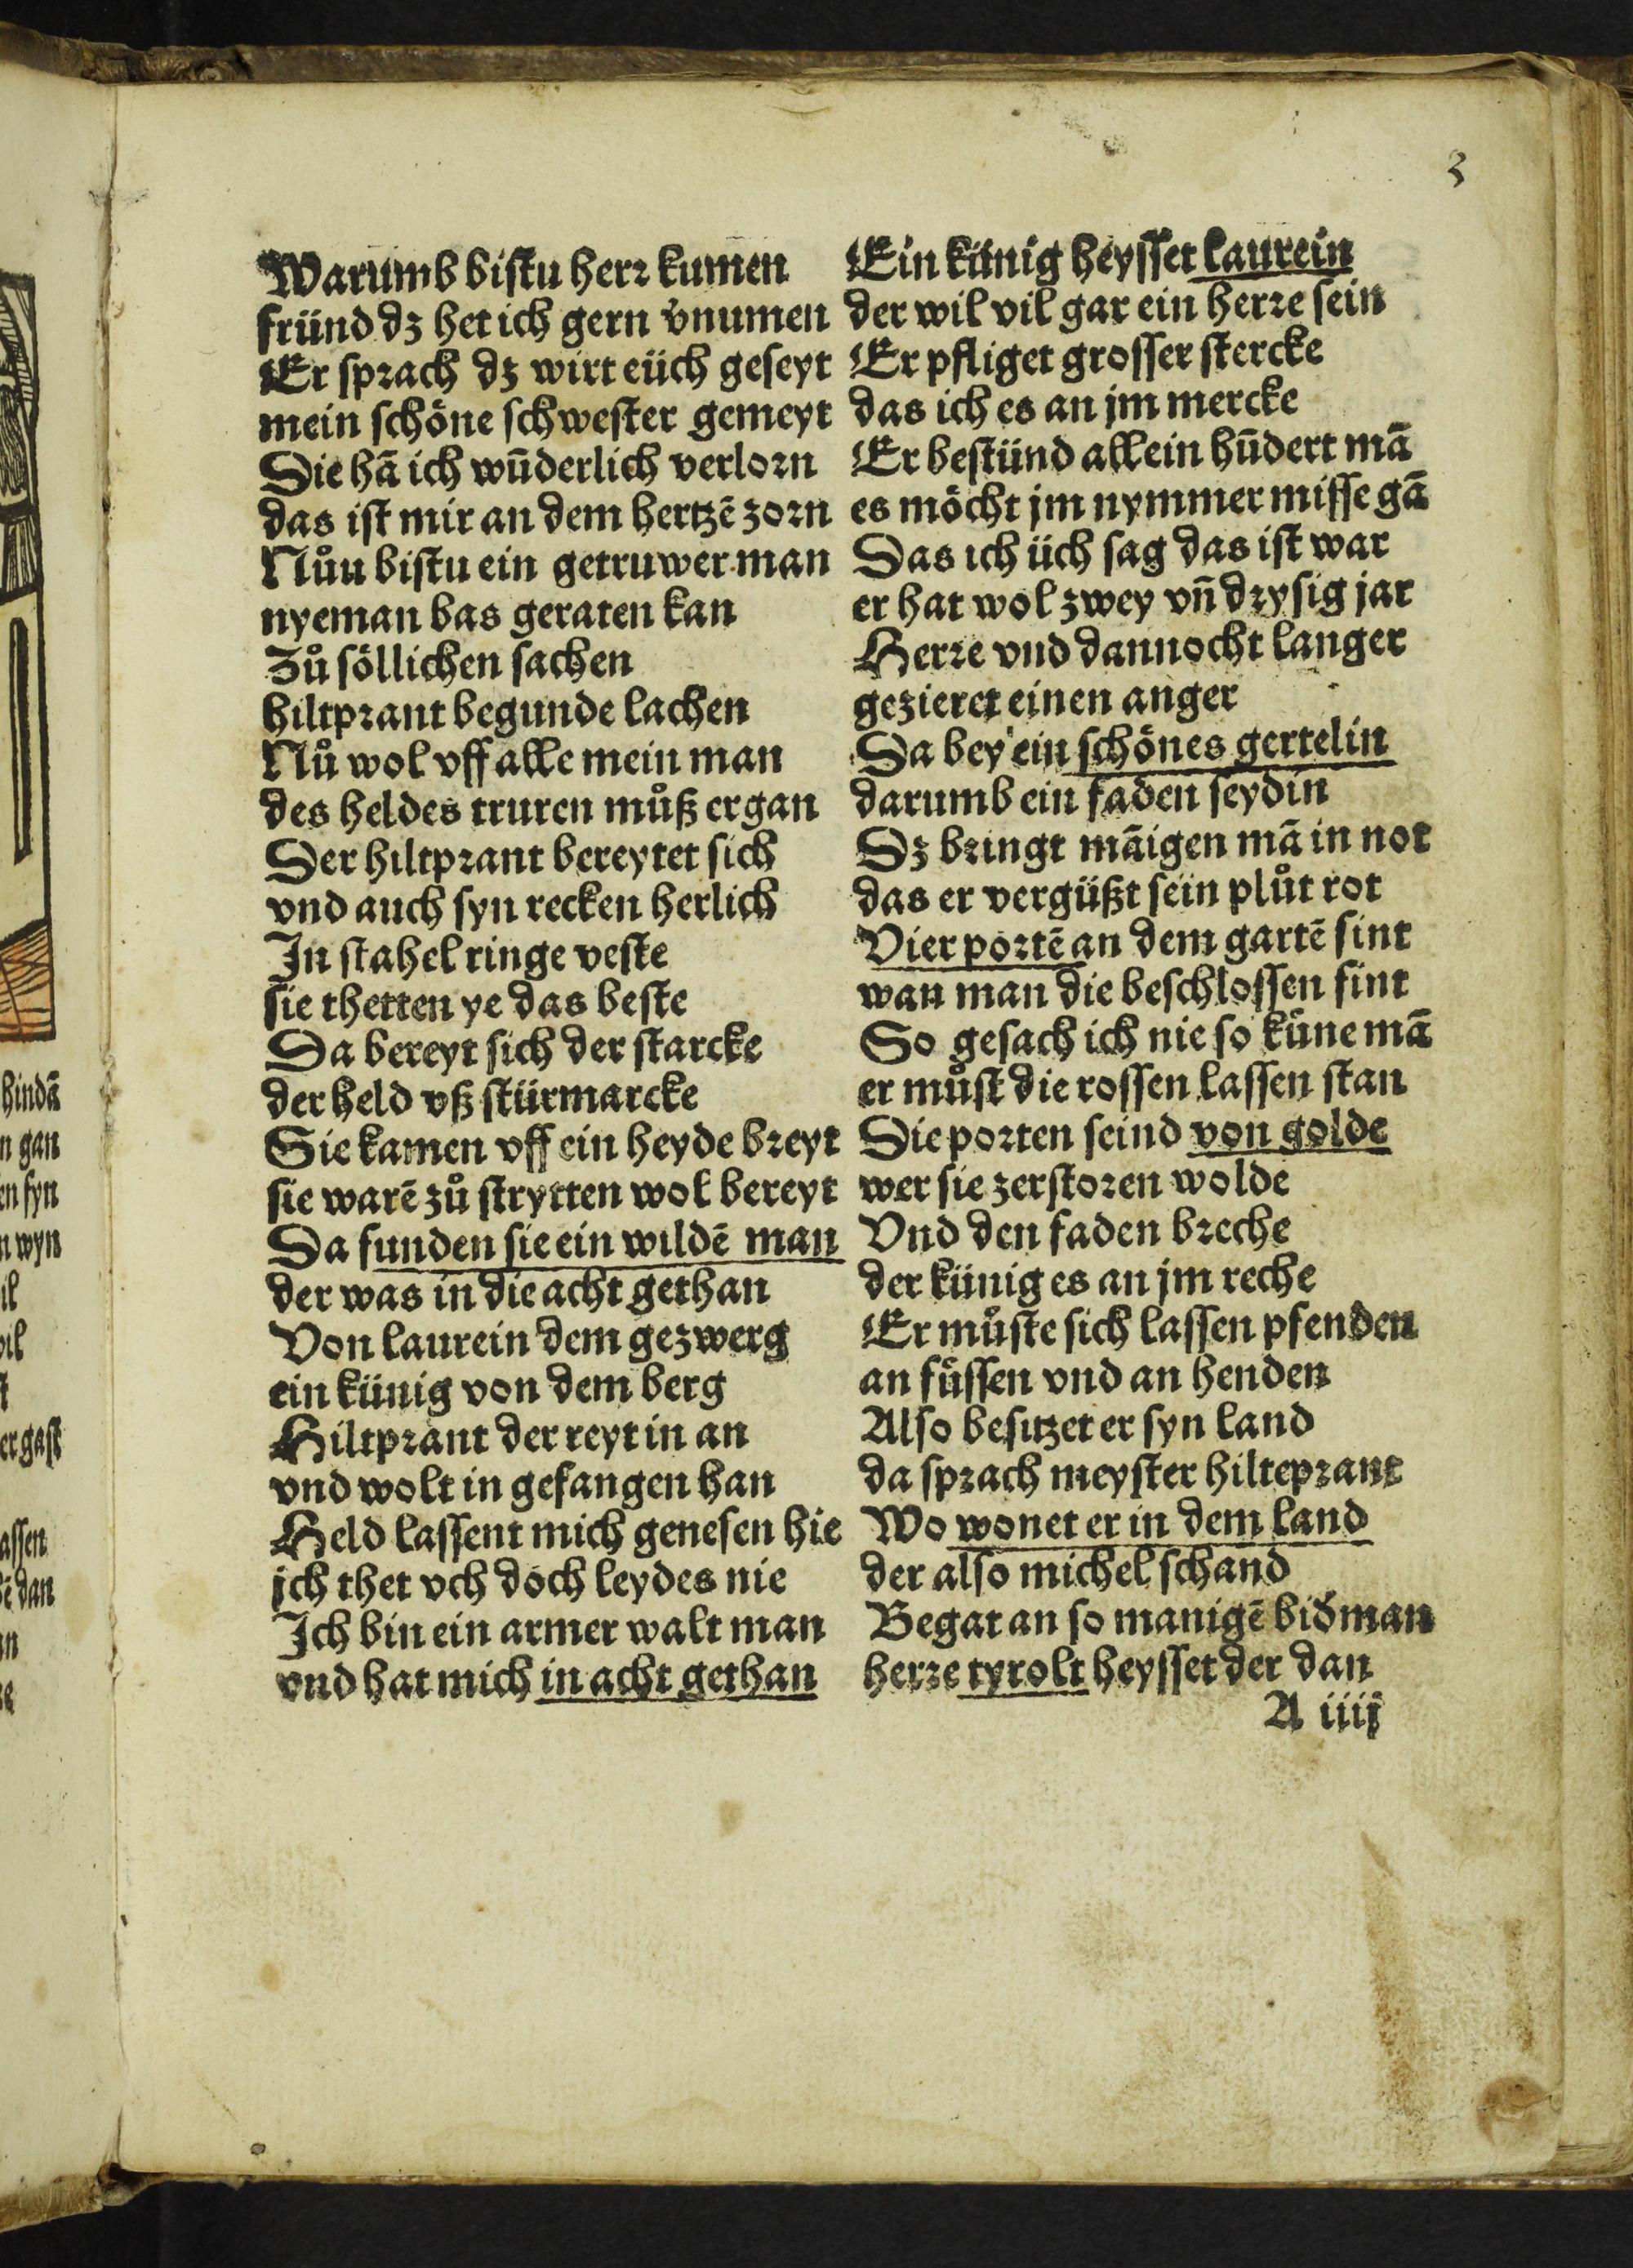 3
Warumb bistu herr kumen
fründ dz het ich gern v̉numen
Er sprach dz wirt eüch geseyt
mein schöne schwester gemeyt
Die hā ich wūderlich verlorn
das ist mir an dem hertzē zorn
Nůu bistu ein getruwer man
nyeman bas geraten kan
Zů söllichen sachen
hiltprant begunde lachen
Nů wol vff alle mein man
des heldes truren můß ergan
Der hiltprant bereytet sich
vnd auch syn recken herlich
In stahel ringe veste
sie thetten ye das beste
Da bereyt sich der starcke
der held vß stürmarcke
Sie kamen vff ein heyde breyt
sie warē zů strytten wol bereyt
Da funden sie ein wildē man
der was in die acht gethan
Von laurein dem gezwerg
ein künig von dem berg
Hiltprant der reyt in an
vnd wolt in gefangen han
Held lassent mich genesen hie
ich thet vch doch leydes nie
Ich bin ein armer walt man
vnd hat mich in acht gethan
Ein künig heysset laurein
der wil vil gar ein herre sein
Er pfliget grosser stercke
das ich es an jm mercke
Er bestünd allein hūdert mā
es möcht jm nymmer misse gā
Das ich üch sag das ist war
er hat wol zwey vñ drysig jar
Herre vnd dannocht langer
gezieret einen anger
Da bey ein schönes gertelin
darumb ein faden seydin
Dz bringt māigen mā in not
das er vergüßt sein plůt rot
Vier portē an dem gartē sint
wan man die beschlossen fint
So gesach ich nie so kůne mā
er můst die rossen lassen stan
Die porten seind von golde
wer sie zerstoren wolde
Vnd den faden breche
der künig es an jm reche
Er můste sich lassen pfenden
an fůssen vnd an henden
Also besitzet er syn land
da sprach meyster hilteprant
Wo wonet er in dem land
der also michel schand
Begat an so manigē bid̓man
herre tyrolt heysset der dan
A iiij
hindā
n gan
en syn
n wyn
il
vil
er gast
assen
ē dan